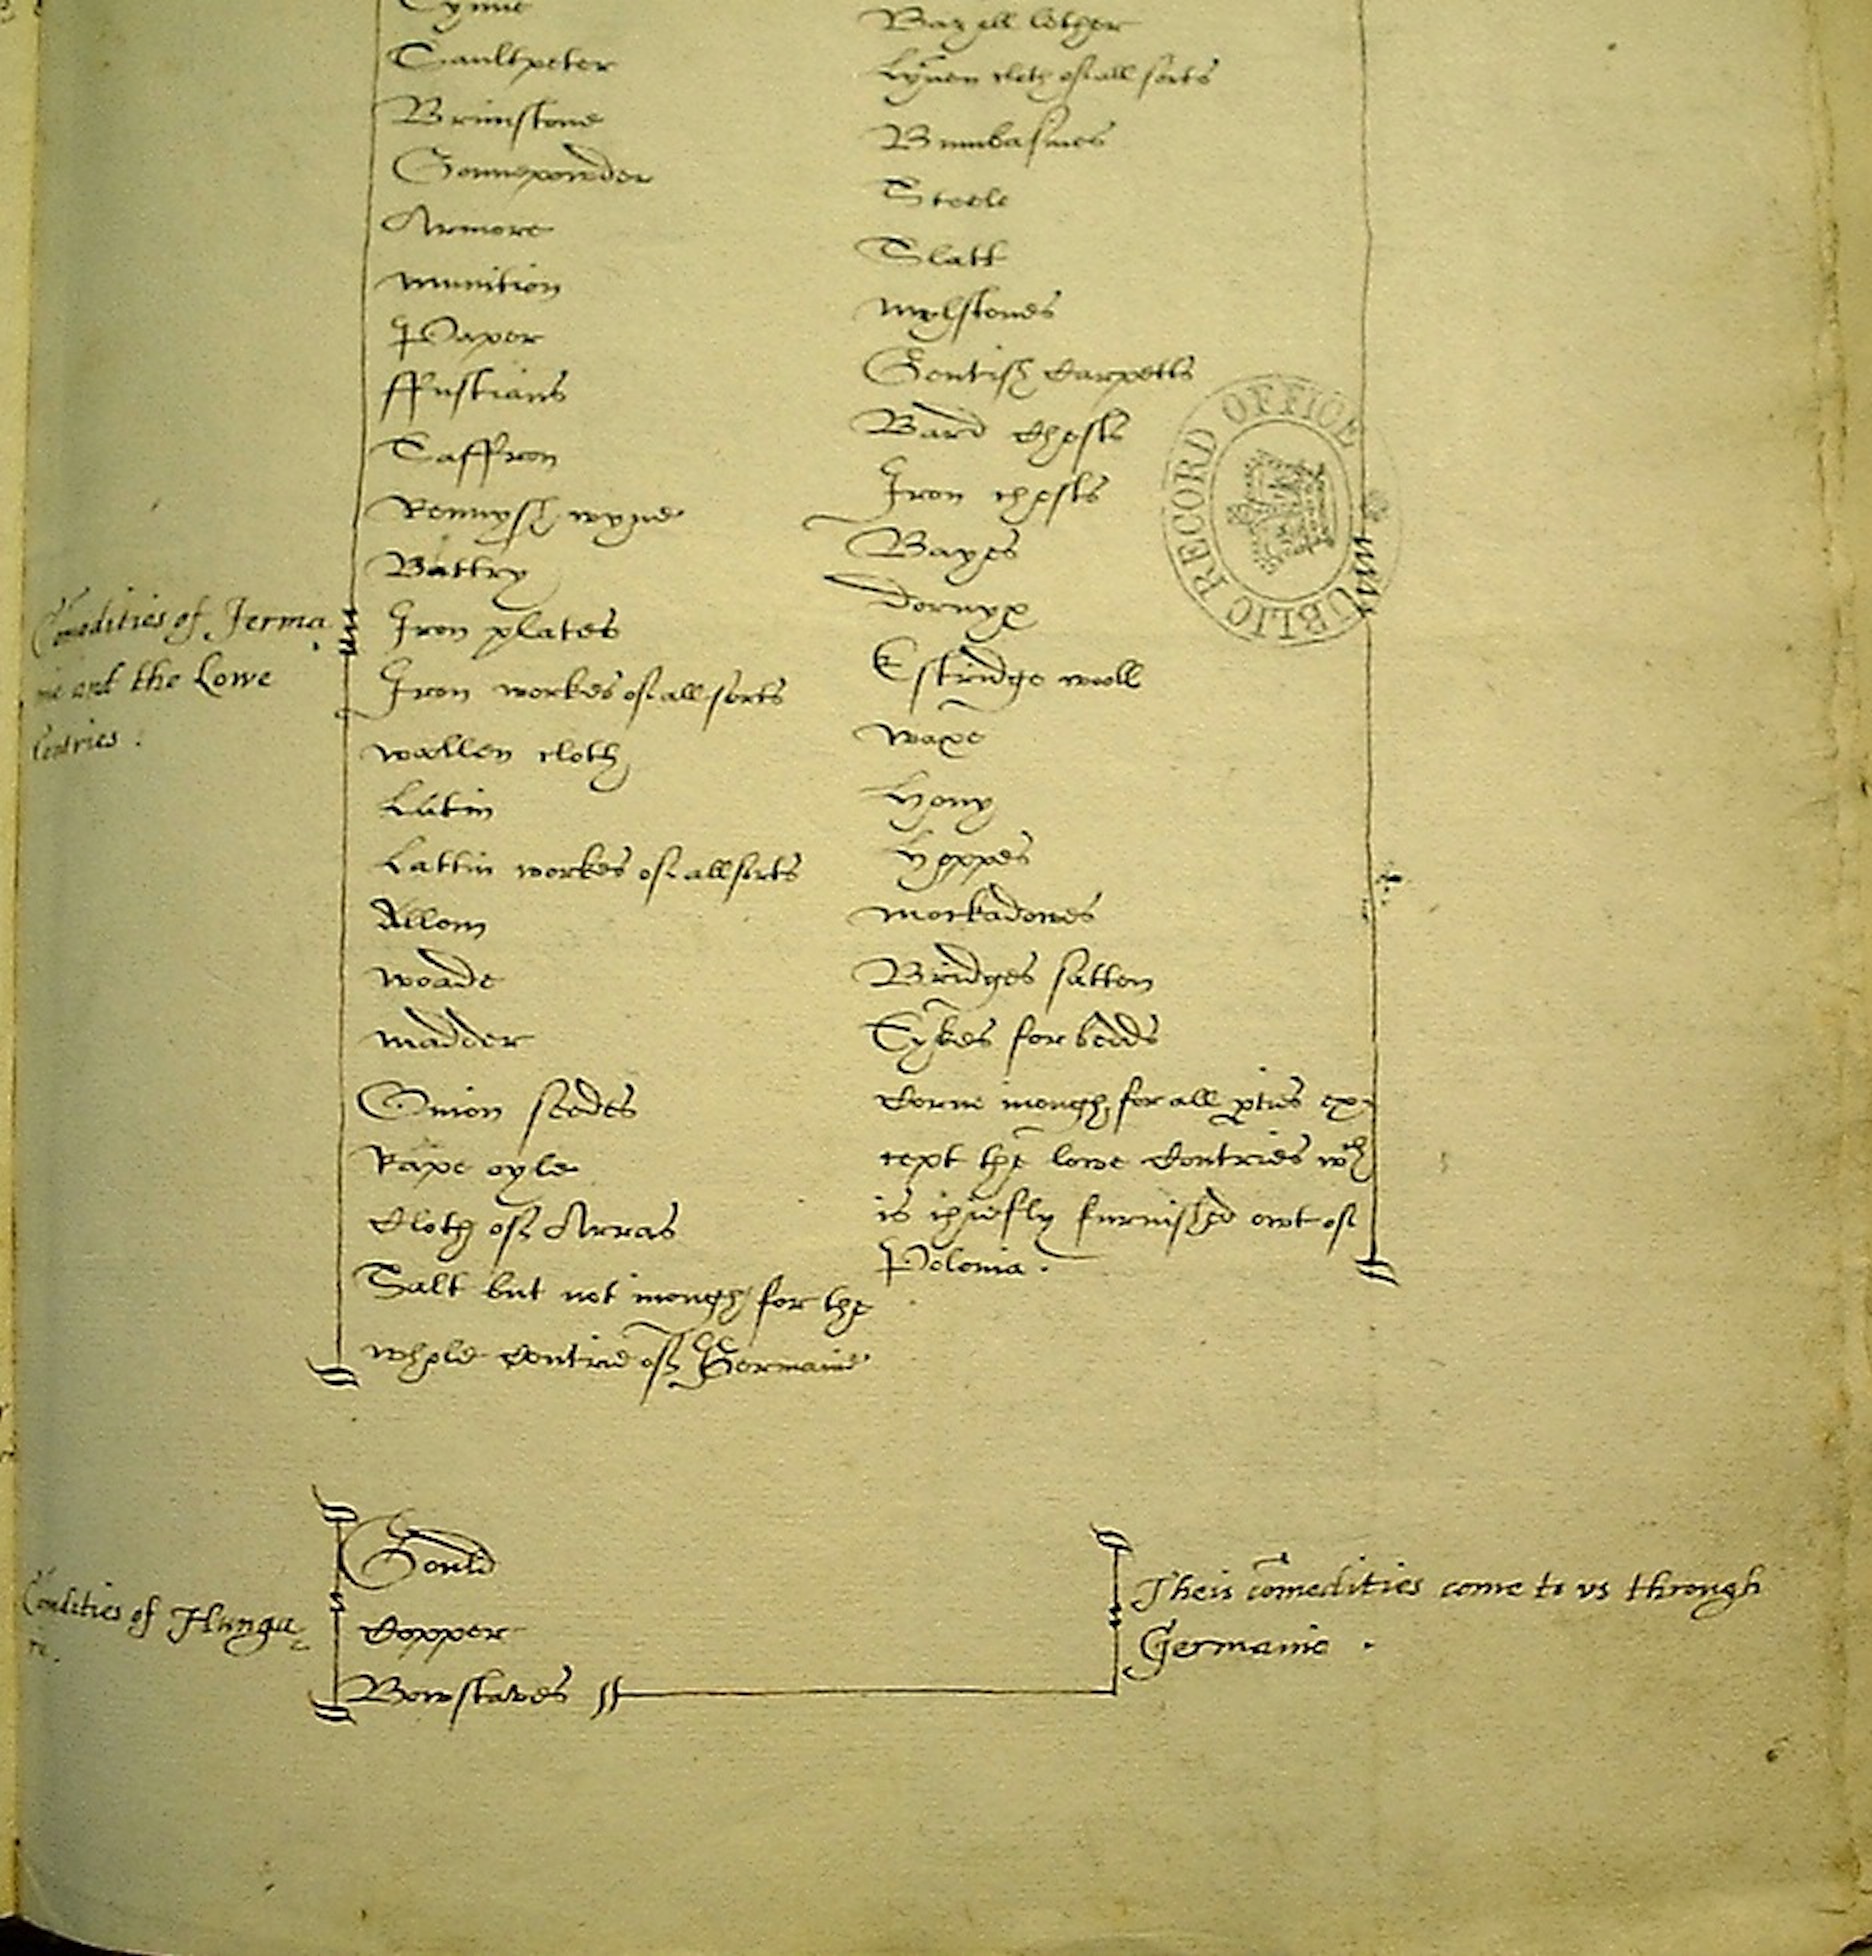 Comodities of Jerma
nie and the Lowe
Contries :
Tynne
Saultpeter
Brimstone
Gonnepowder
Armore
Munition
Paper
ffustians
Saffron
Rennysh wyne
Battry
Iron plates
Iron workes of all sorts
wollen cloth
Latin
Lattin workes of all sorts
Allom
woade
madder
Onion seedes
Rape oyle
Cloth of Arras
Salt but not inough for the
whole Contrie of Germanie
Bazell lether
Lynen cloth of all sorts
Bumbasines
Steele
Slatt
mylstones
Gentish Carpetts
Bard Chests
Iron chests
Bayes
Dornyx
Estridge woll
waxe
Hony
Hoppes
mockadowes
Bridges satten
Tykes for bedds
Corne inough for all pties ex-
cept the lowe Contries wch
is chiefly furnished owt of
Polonia .
PUBLIC RECORD OFFICE
Comodities of Hunga
rie.
Gould
Copper
Bowstaves
Theis comedities come to vs through
Germanie .